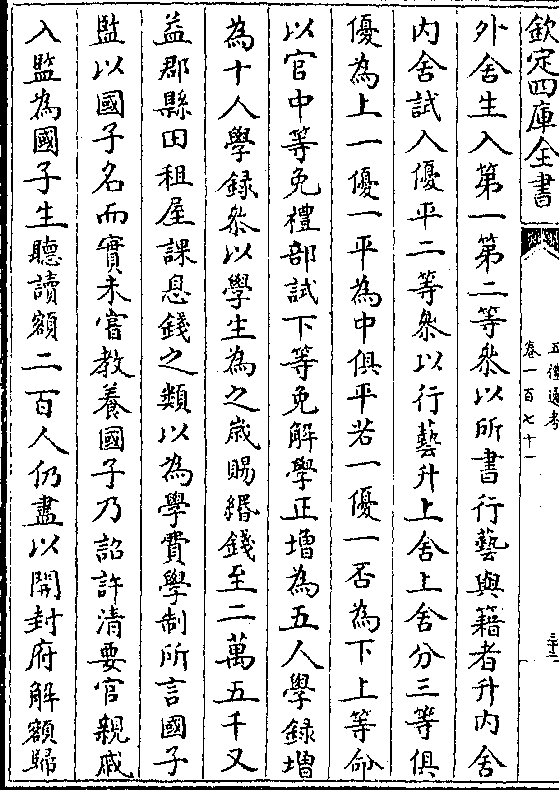 欽定四庫全書
五禮通考
卷一百七十一
三十二
外舍生入第一第二等叅以所書行藝與籍者升内舍
内舍試入優平二等叅以行藝升上舍上舍分三等俱
優為上一優一平為中俱平若一優一否為下上等命
以官中等免禮部試下等免解學正増為五人學録増
為十人學録叅以學生為之歳賜緡錢至二萬五千又
益郡縣田租屋課息錢之類以為學費學制所言國子
監以國子名而實未嘗教養國子乃詔許清要官親戚
入監為國子生聽讀額二百人仍盡以開封府解額歸